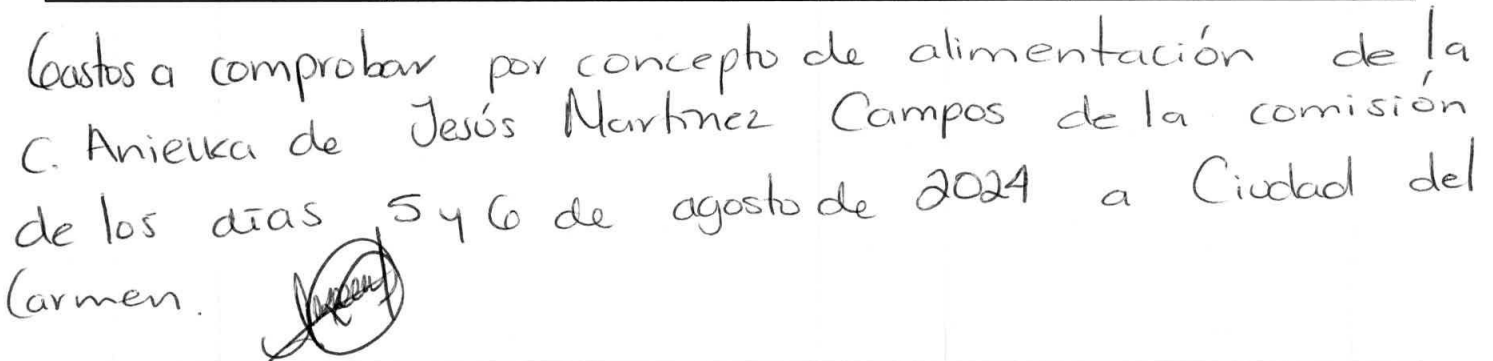 Gastos a comprobar por concepto de alimentación de la
C. Anielka de Jesús Martínez Campos de la comisión
de los días 5 y 6 de agosto de 2024 a Ciudad del
Carmen.